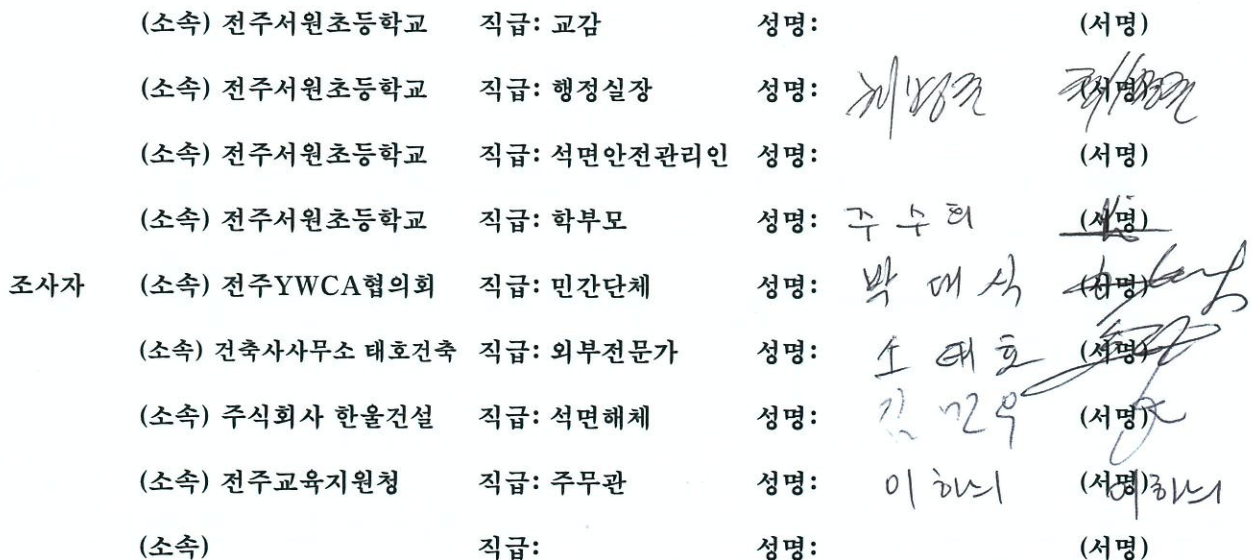 (소속) 전주서원초등학교 직급: 교감 성명: (서명)
(소속) 전주서원초등학교 직급: 행정실장 성명: (서명)
(소속) 전주서원초등학교 직급: 석면안전관리인 성명: (서명)
(소속) 전주서원초등학교 직급: 학부모 성명: 주수희 (서명)
조사자 (소속) 전주YWCA협의회 직급: 민간단체 성명: 박대식 (서명)
(소속) 건축사사무소 태호건축 직급: 외부전문가 성명: 소태호 (서명)
(소속) 주식회사 한울건설 직급: 석면해체 성명: 김민우 (서명)
(소속) 전주교육지원청 직급: 주무관 성명: 이하늬 (서명) 이하늬
(소속) 직급: 성명: (서명)